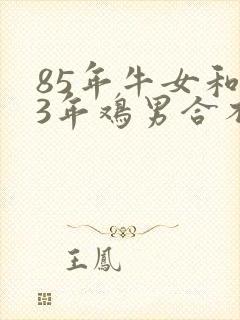 85年牛女和
3年鸡男合
王鳳